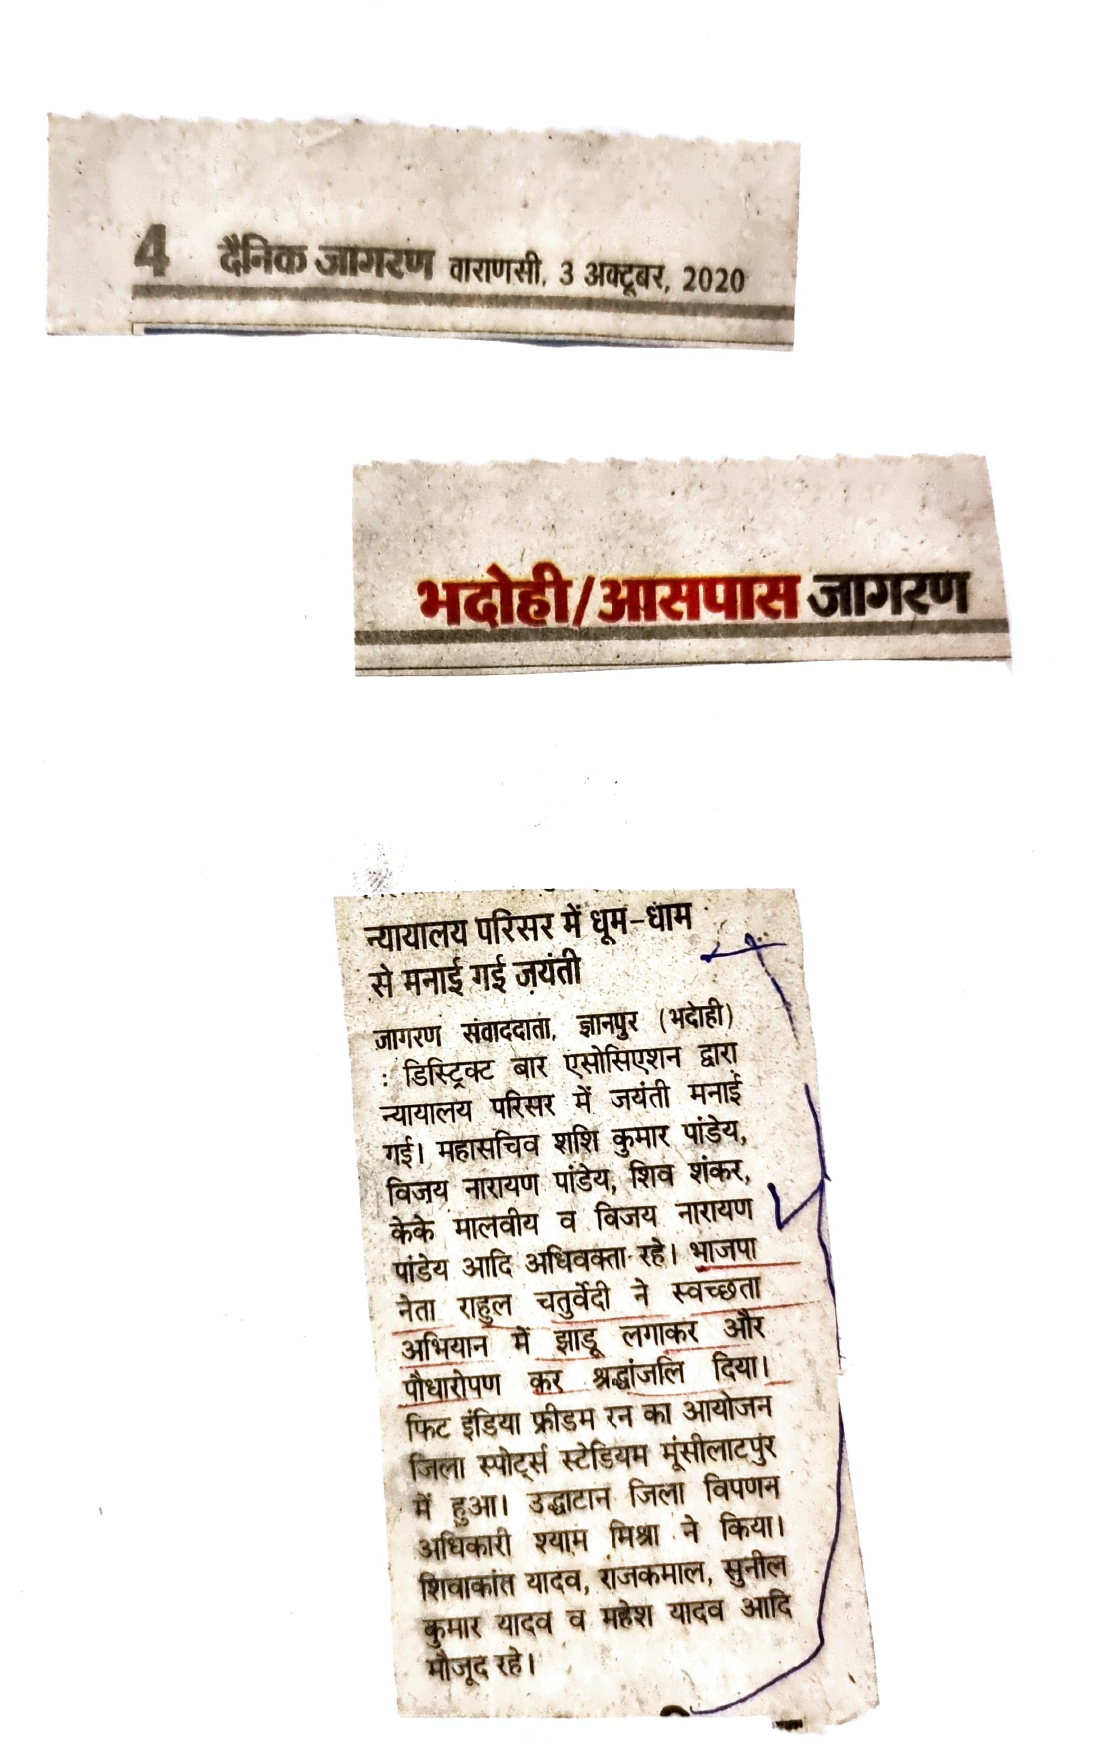 4 दैनिक जागरण वाराणसी, 3 अक्टूबर, 2020
भदोही/आसपास जागरण
न्यायालय परिसर में धूम-धाम
से मनाई गई जयंती
जागरण संवाददाता, ज्ञानपुर (भदोही)
: डिस्ट्रिक्ट बार एसोसिएशन द्वारा
न्यायालय परिसर में जयंती मनाई
गई। महासचिव शशि कुमार पांडेय,
विजय नारायण पांडेय, शिव शंकर,
केके मालवीय व विजय नारायण
पांडेय आदि अधिवक्ता रहे। भाजपा
नेता राहुल चतुर्वेदी ने स्वच्छता
अभियान में झाडू लगाकर और
पौधारोपण कर श्रद्धांजलि दिया।
फिट इंडिया फ्रीडम रन का आयोजन
जिला स्पोर्ट्स स्टेडियम मूंसीलाटपुर
में हुआ। उद्घाटान जिला विपणन
अधिकारी श्याम मिश्रा ने किया।
शिवाकांत यादव, राजकमाल, सुनील
कुमार यादव व महेश यादव आदि
मौजूद रहे।